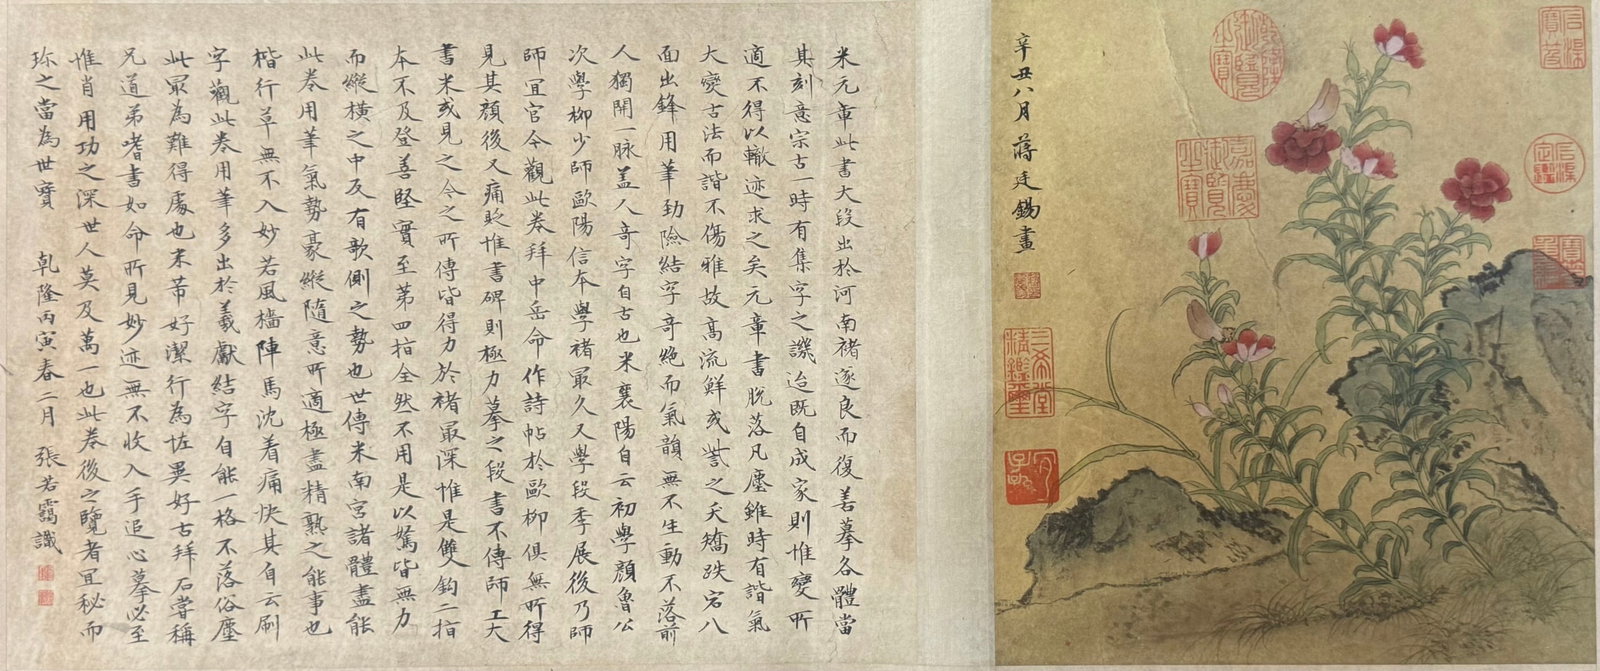 石渠寶笈
石渠定鑑
寶笈重編
乾隆御覽之寶
嘉慶御覽之寶
辛丑八月蔣廷錫畫
三希堂精鑑璽
宜子孫
米元章此書大段出於河南褚遂良而復善摹各體當
其刻意宗古一時有集字之譏迨既自成家則惟變所
適不得以轍迹求之矣元章書脫落凡塵雖時有諧氣
大變古法而諧不傷雅故高流鮮或訾之夭矯跌宕八
面出鋒用筆勁險結字奇絕而氣韻無不生動不落前
人獨開一脉蓋八奇字自古也米襄陽自云初學顏魯公
次學柳少師歐陽信本學褚最久又學段季展後乃師
師宜官今觀此卷拜中岳命作詩帖於歐柳俱無所得
見其顏後又痛貶惟書碑則極力摹之段書不傳師工大
書米或見之今之所傳皆得力於褚最深惟是雙鈎二指
本不及登善堅實至第四指全然不用是以駑皆無力
而縱橫之中反有欹側之勢也世傳米南宮諸體盡能
此卷用筆氣勢豪縱隨意所適極盡精熟之能事也
楷行草無不入妙若風檣陣馬沈着痛快其自云刷
字觀此卷用筆多出於羲獻結字自能一格不落俗塵
此最為難得處也米芾好潔行為怪異好古拜石嘗稱
兄道弟嗜書如命所見妙迹無不收入手追心摹必至
惟肖用功之深世人莫及萬一也此卷後之覽者宜秘而
珎之當為世寶 乾隆丙寅春二月 張若靄識